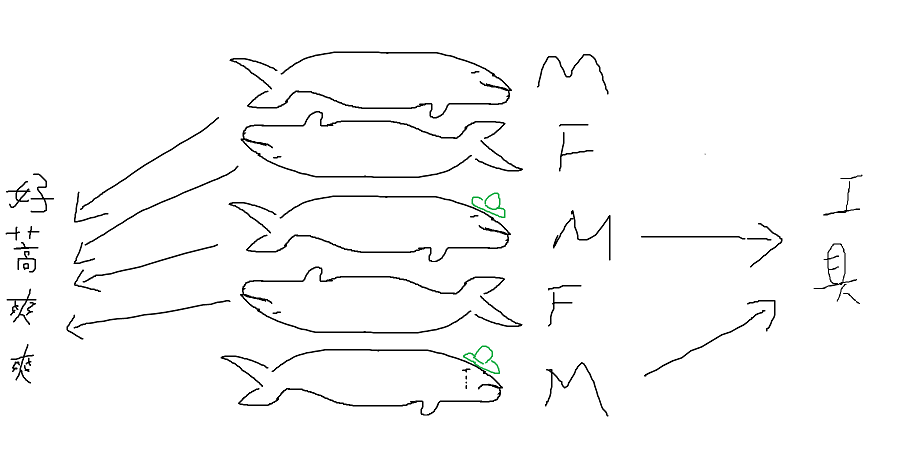 好蒿爽爽
M
F
M
F
M
工具